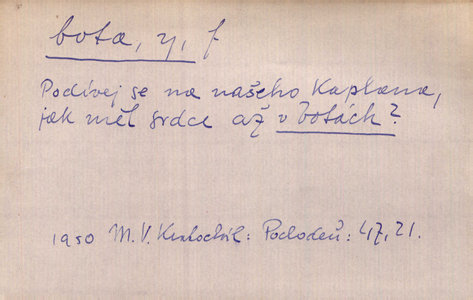 bota, y, f
Podívej se na našeho Kaplana,
jak měl srdce až v botách?
1950 M. V. Kratochvíl: Pochodeň: 47, 21.